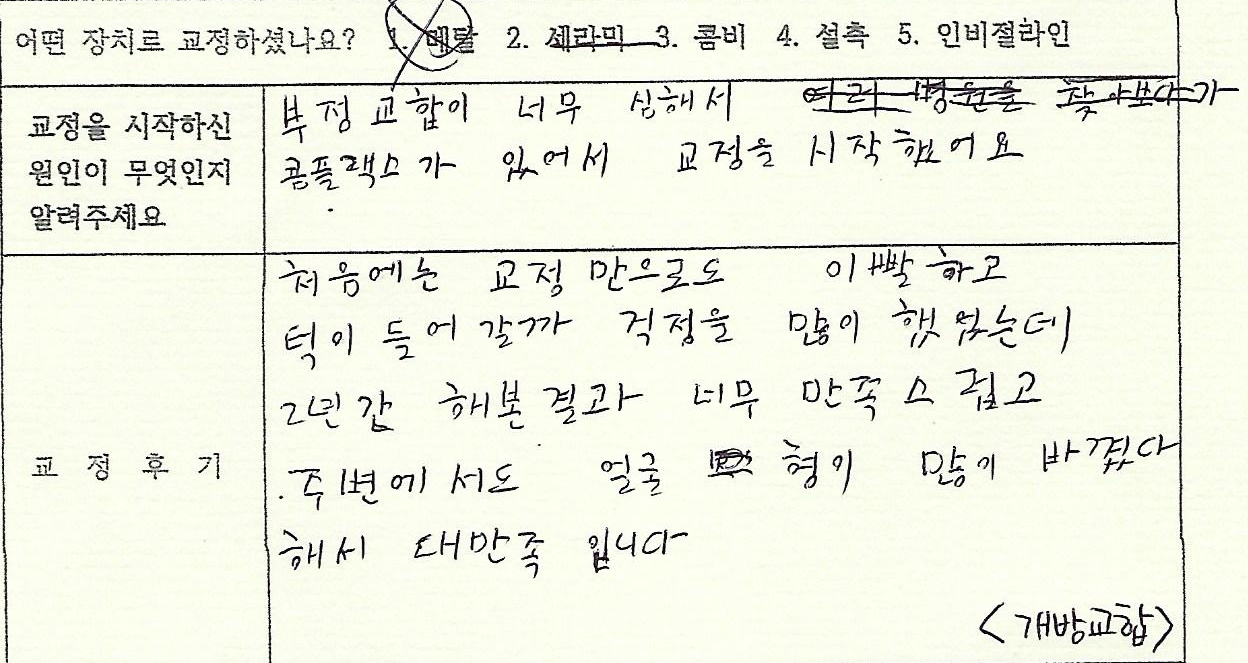 어떤 장치로 교정하셨나요? 1. 메탈 2. 세라믹 3. 콤비 4. 설측 5. 인비절라인
교정을 시작하신
원인이 무엇인지
알려주세요
부정교합이 너무 심해서 여러 병원을 찾아보다가
콤플랙스가 있어서 교정을 시작했어요
교정후기
처음에는 교정만으로도 이빨하고
턱이 들어갈까 걱정을 많이 했었는데
2년간 해본결과 너무 만족스럽고
주변에서도 얼굴 형이 많이 바꼈다
해서 대만족 입니다
<개방교합>